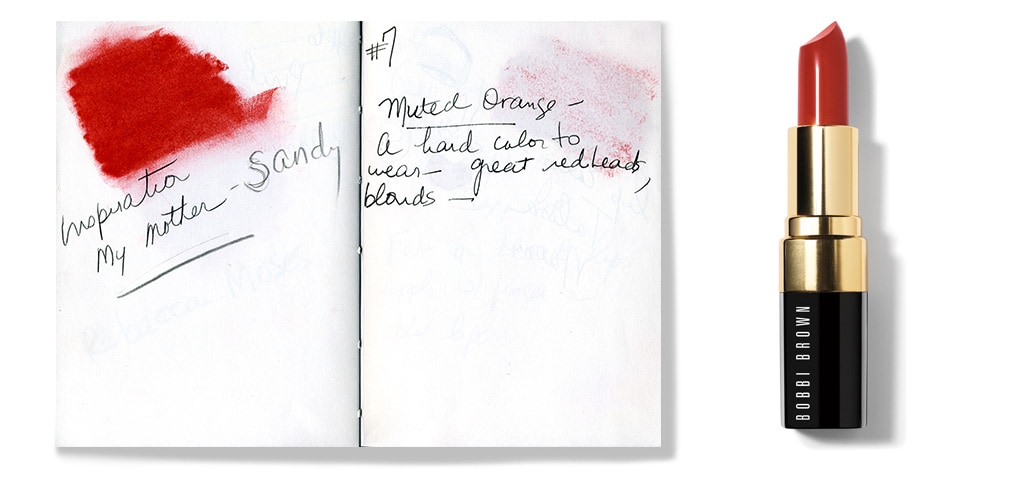 Inspiration
My mother - Sandy
#7
Muted Orange -
A hard color to
wear- great redheads,
blonds -
BOBBI BROWN